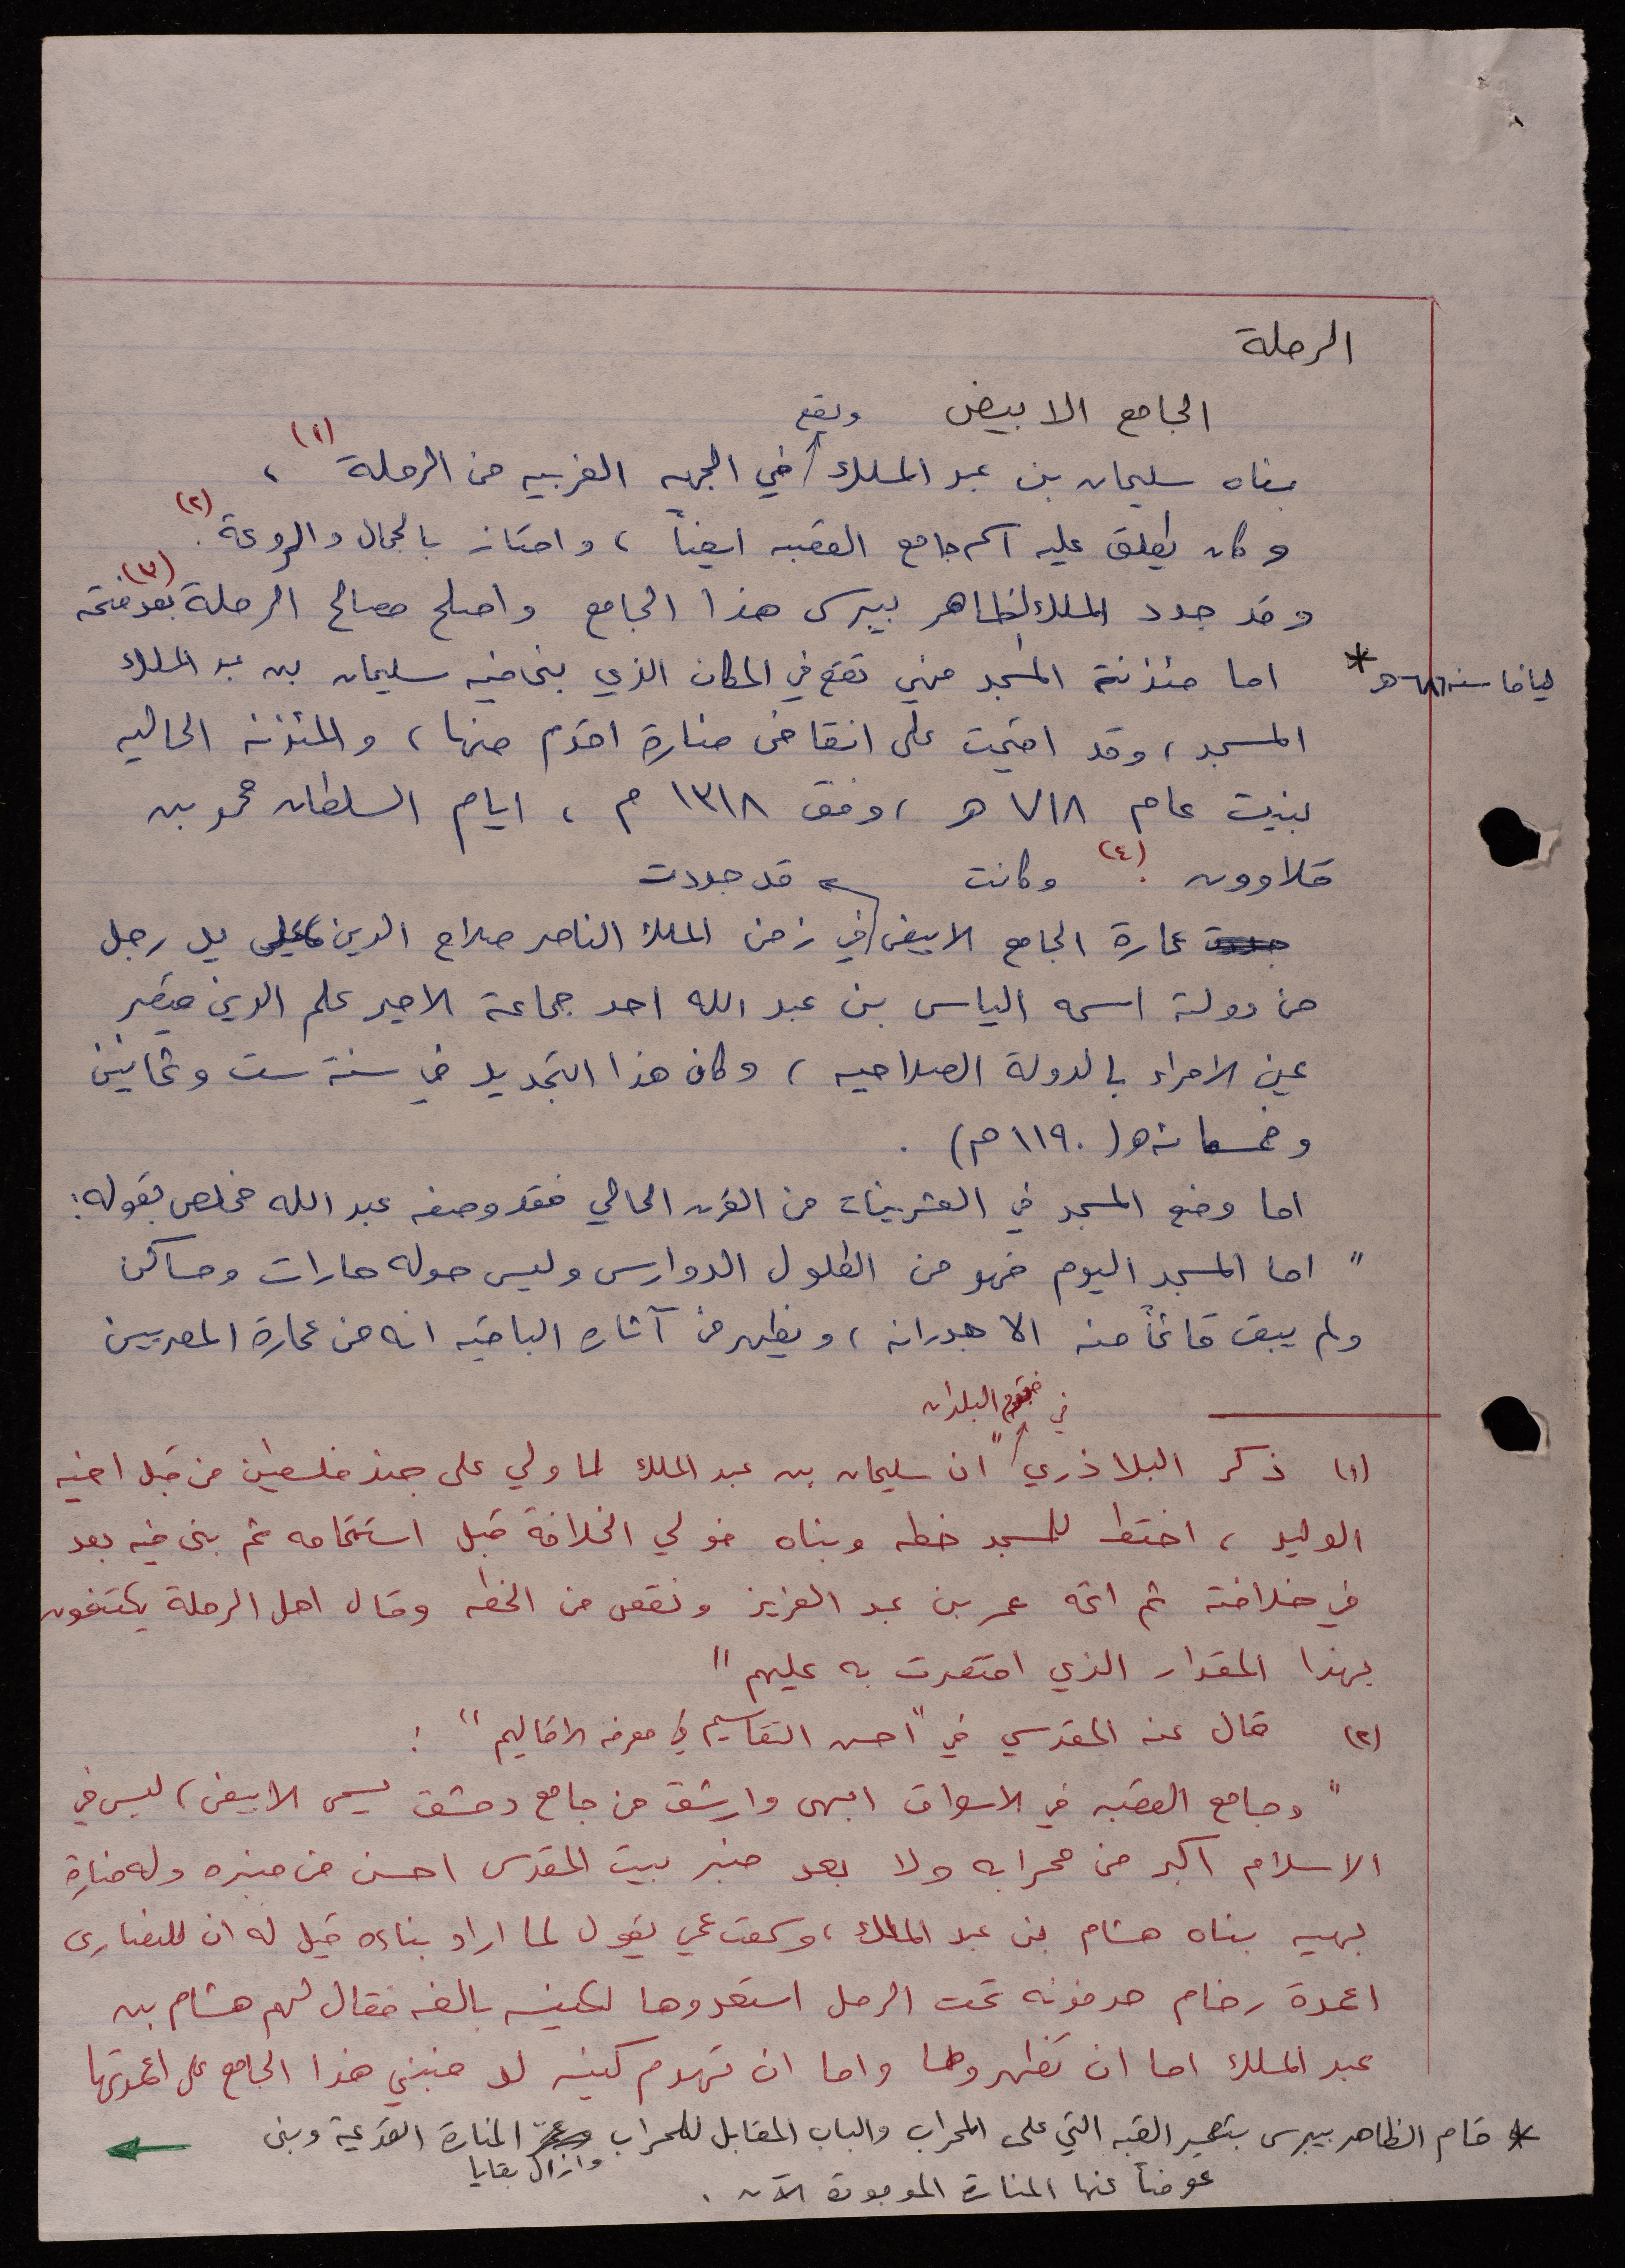 الرملة
الجامع الابيض
بناه سليمان بن عبد الملك ويقع في الجهه الغربيه من الرملة (١) ،
وكان يطلق عليه اسم جامع القصبه ايضاً ، وامتاز بالجمال والروعة (٢) .
وقد جدد الملك الظاهر بيبرس هذا الجامع واصلح مصالح الرملة (٣) بعد فتحه
ليافا سنه *
اما مئذنة المسجد فهي تقع في المكان الذي بنى فيه سليمان بن عبد الملك
المسجد ، وقد اقيمت على انقاض منارة اقدم منها ، والمئذنه الحاليه
بنيت عام ٧١٨ هـ ، وفق ١٣١٨ م ، ايام السلطان محمد بن
قلاوون (٤) . وكانت
عمارة الجامع الابيض قد جددت في زمن الملك الناصر صلاح الدين على يد رجل
من دولته اسمه الياس بن عبد الله احد جماعة الامير علم الدين قيصر
عين الامراء بالدولة الصلاحيه ، وكان هذا التجديد في سنة ست وثمانين
وخمسمائه هـ ( ١١٩٠ م ) .
اما وضع المسجد في العشرينات من القرن الحالي فقد وصفه عبد الله مخلص بقوله :
" اما المسجد اليوم فهو من الطلول الدوارس وليس حوله حارات ومساكن
ولم يبق قائماً منه الا جدرانه ، ويظهر من آثاره الباقيه انه من عمارة المصريين
(١) ذكر البلاذري في فتوح البلدان " ان سليمان بن عبد الملك لما ولي على جند فلسطين من قبل اخيه
الوليد ، اختط للمسجد خطه وبناه فولي الخلافة قبل استتمامه ثم بنى فيه بعد
في خلافته ثم اتمه عمر بن عبد العزيز ونقص من الخطه وقال اهل الرملة يكتفون
بهذا المقدار الذي اقتصرت به عليهم "
(٢) قال عنه المقدسي في " احسن التقاسيم في معرفه الاقاليم " :
" وجامع القصبه في الاسواق ابهى وارشق من جامع دمشق يسمى الابيض ، ليس في
الاسلام اكبر من محرابه ولا بعد منبر بيت المقدس احسن من منبره وله منارة
بهيه بناه هشام بن عبد الملك ، وسمعت عمي يقول لما اراد بناءه قيل له ان للنصارى
اعمدة رخام مدفونه تحت الرمل استعدوها لكنيسه بالغه فقال لهم هشام بن
عبد الملك اما ان تظهروها واما ان نهدم كنيسه لد فنبني هذا الجامع على اعمدتها
* قام الظاهر بيبرس بتعمير القبه التي على المحراب والباب المقابل للمحراب وازال بقايا المنارة القديمة وبنى
عوضاً عنها المنارة الموجودة الآن .